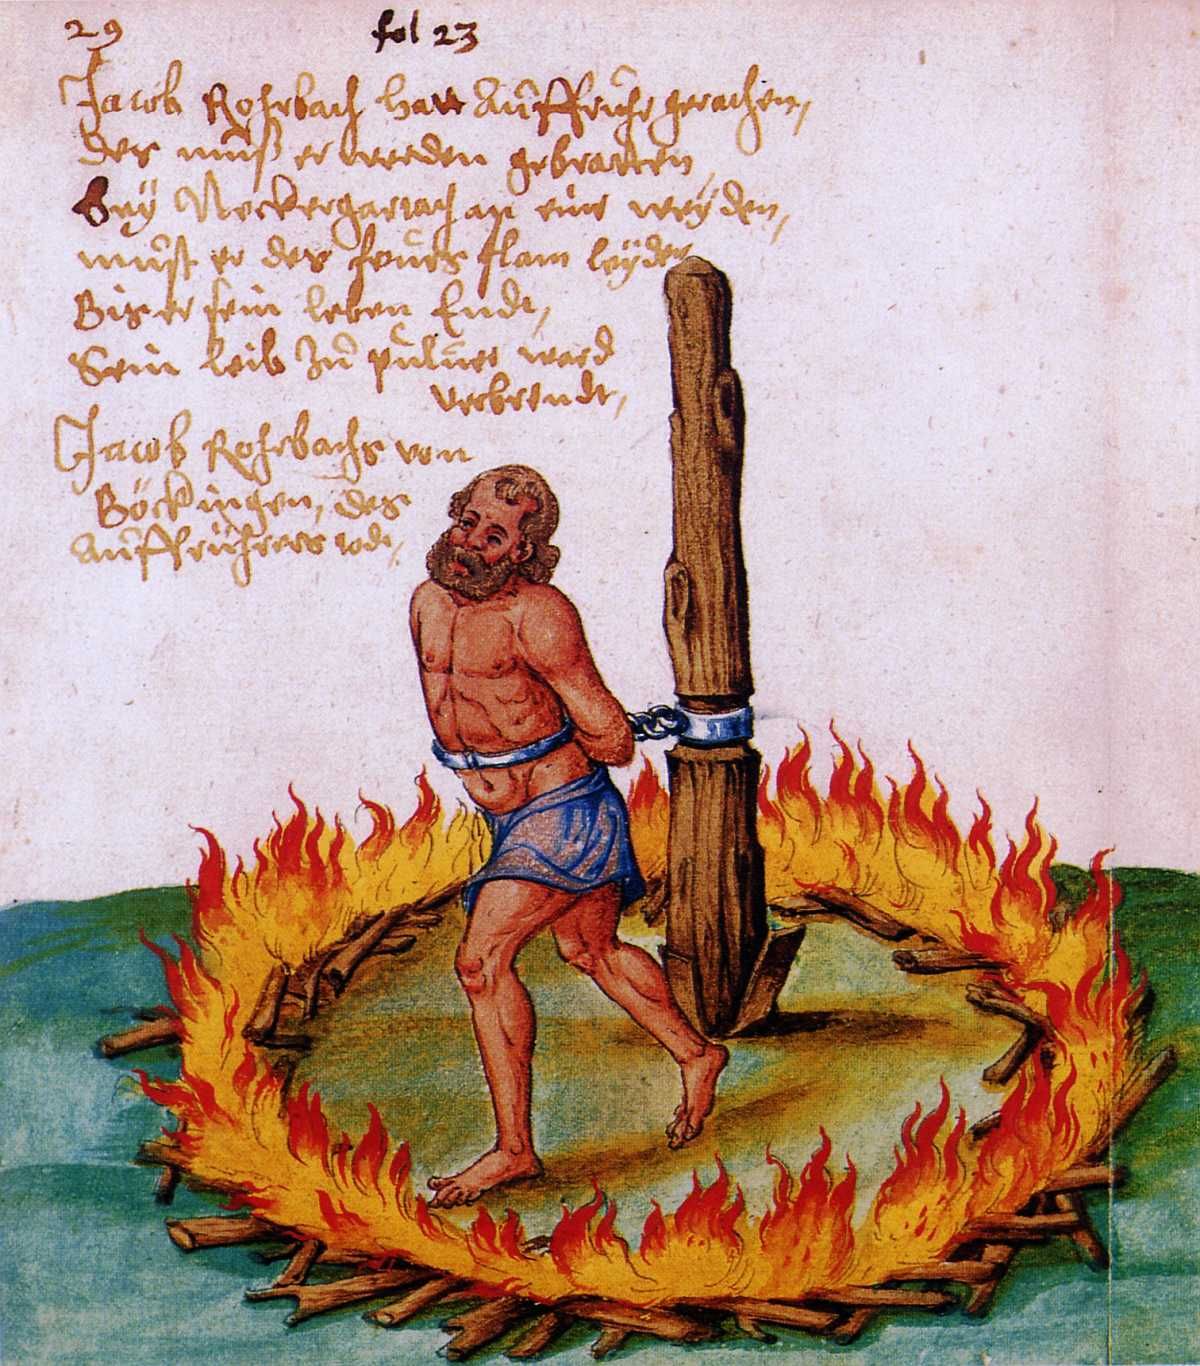 29 fol 23
Jacob Rohrbach hatt Auffruhr gerachen,
der muß er werden gebratten
Bey Neckergartach an eine weyden,
must er des feuers flam leyden
Bis er sein leben Endt,
Sein leib Zu puluer ward
verbrendt,
Jacob Rohrbachs von
Böckingen, des
Auffrührers todt,